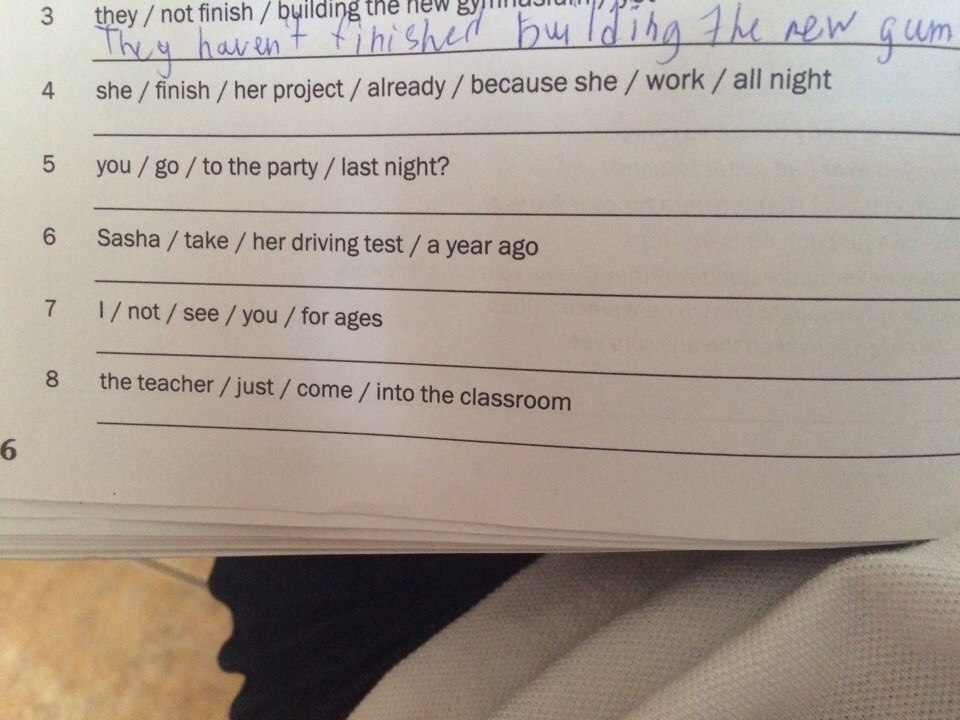 3 they / not finish / building the new gymnasium
They haven't finished building the new gum
4 she / finish / her project / already / because she / work / all night
5 you / go / to the party / last night?
6 Sasha / take / her driving test / a year ago
7 I / not / see / you / for ages
8 the teacher / just / come / into the classroom
6